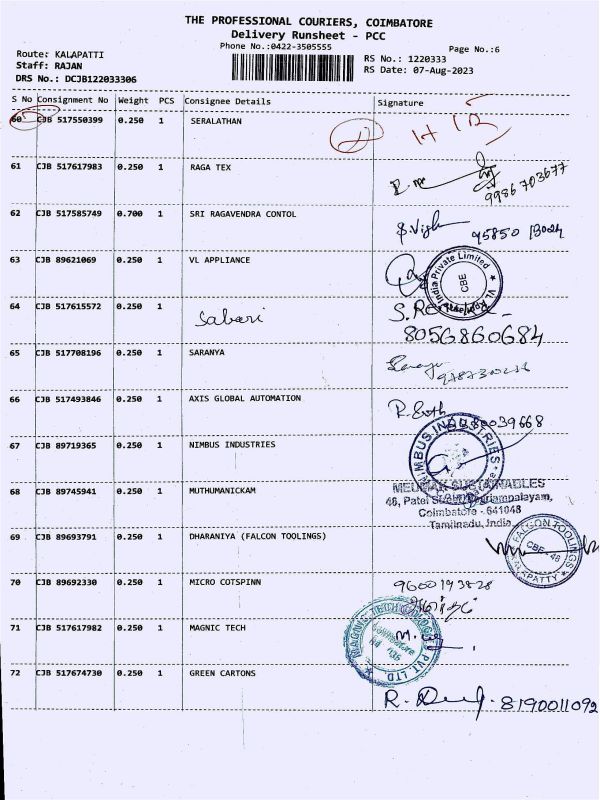 THE PROFESSIONAL COURIERS, COIMBATORE
Delivery Runsheet - PCC
Phone No.:0422-3505555
Page No.:6
Route: KALAPATTI
Staff: RAJAN
DRS No.: DCJB122033306
RS No.: 1220333
RS Date: 07-Aug-2023
S No Consignment No Weight PCS Consignee Details Signature
60 CJB 517550399 0.250 1 SERALATHAN
61 CJB 517617983 0.250 1 RAGA TEX
9986703677
62 CJB 517585749 0.700 1 SRI RAGAVENDRA CONTOL
S.Vigh
63 CJB 89621069 0.250 1 VL APPLIANCE
India Private Limited
CBE
64 CJB 517615572 0.250 1 Sabari
8056860684
65 CJB 517708196 0.250 1 SARANYA
66 CJB 517493846 0.250 1 AXIS GLOBAL AUTOMATION
67 CJB 89719365 0.250 1 NIMBUS INDUSTRIES
NIMBUS INDUSTRIES
68 CJB 89745941 0.250 1 MUTHUMANICKAM
46, Patel
Coimbatore - 641048
Tamilnadu, India
69 CJB 89693791 0.250 1 DHARANIYA (FALCON TOOLINGS)
FALCON TOOLINGS
CBE-48
70 CJB 89692330 0.250 1 MICRO COTSPINN
71 CJB 517617982 0.250 1 MAGNIC TECH
PVT. LTD
72 CJB 517674730 0.250 1 GREEN CARTONS
8190011092